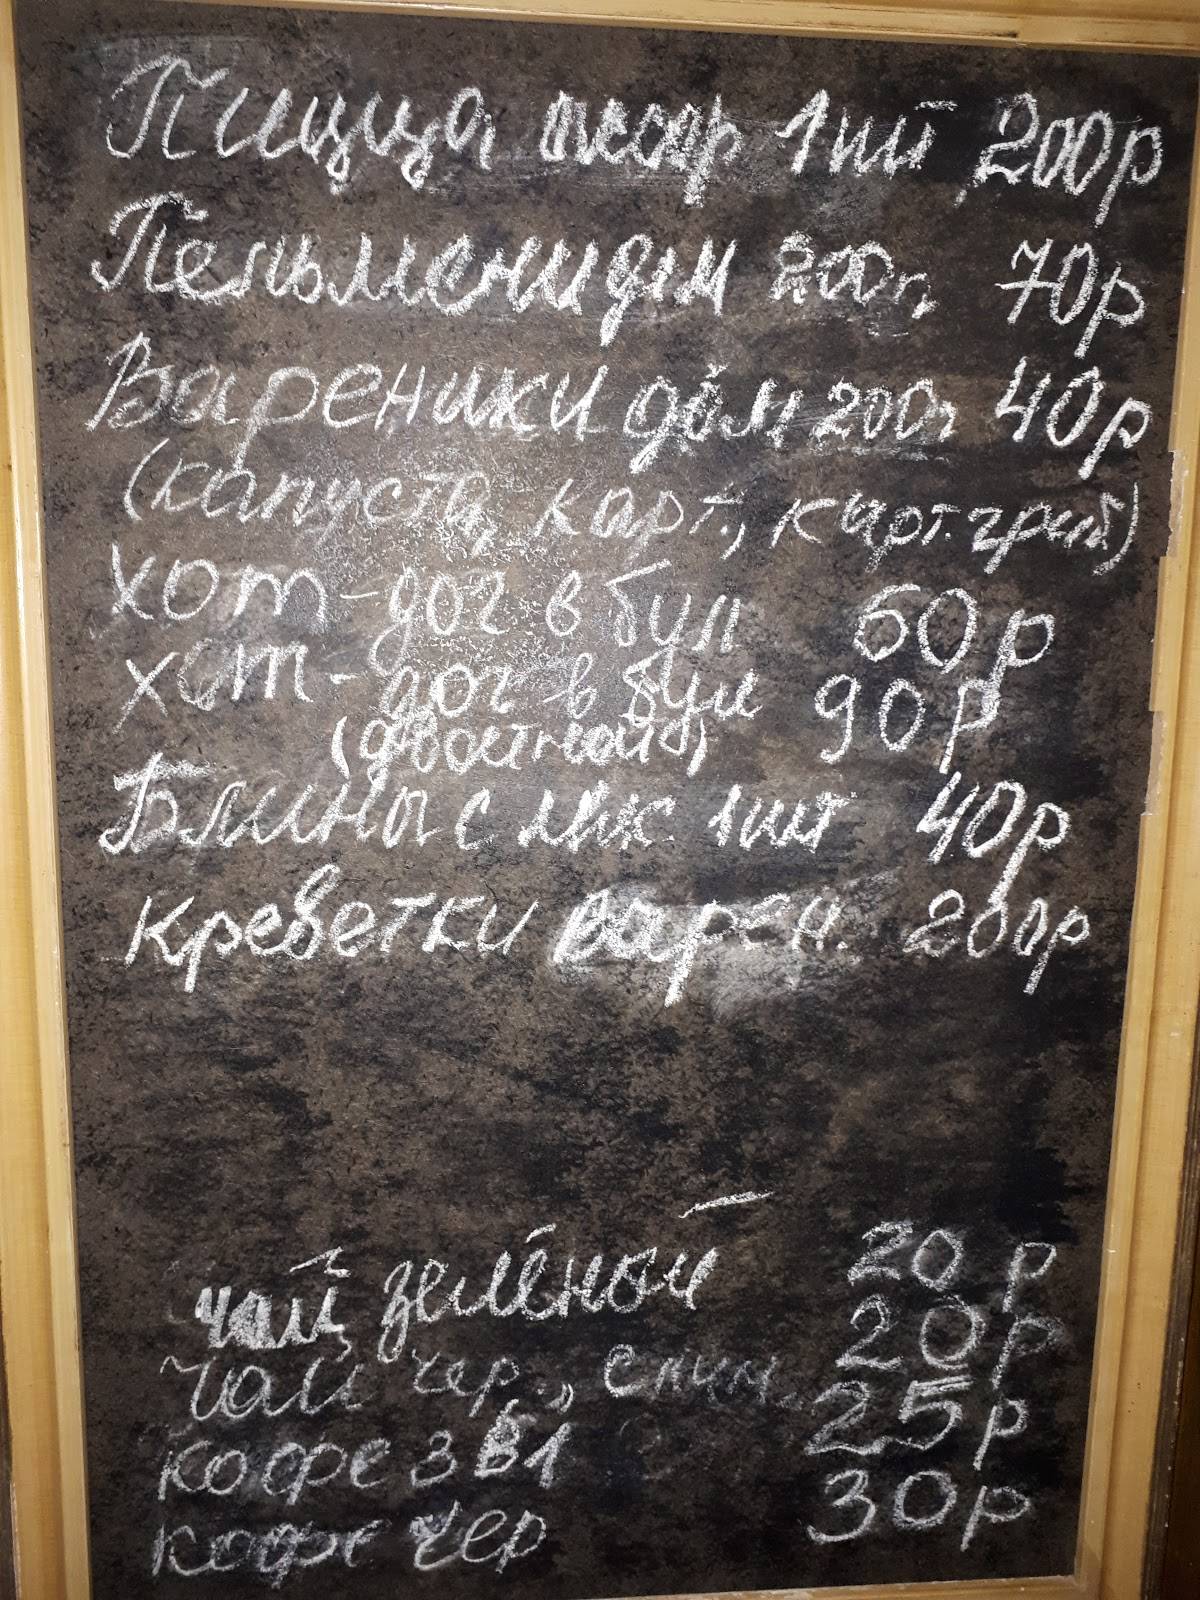 Пицца жар 1шт 200р
Пельмени дом 200г 70р
Вареники дом 200г 40р
(капуста, карт., карт. гриб)
Хот-дог в бул 60р
Хот-дог в бул 90р
(двойной)
Блины с мяс. 1шт 40р
Креветки варен. 200р
чай зелёной 20р
Чай чер., с лим. 20р
Кофе 3в1 25р
Кофе чер 30р